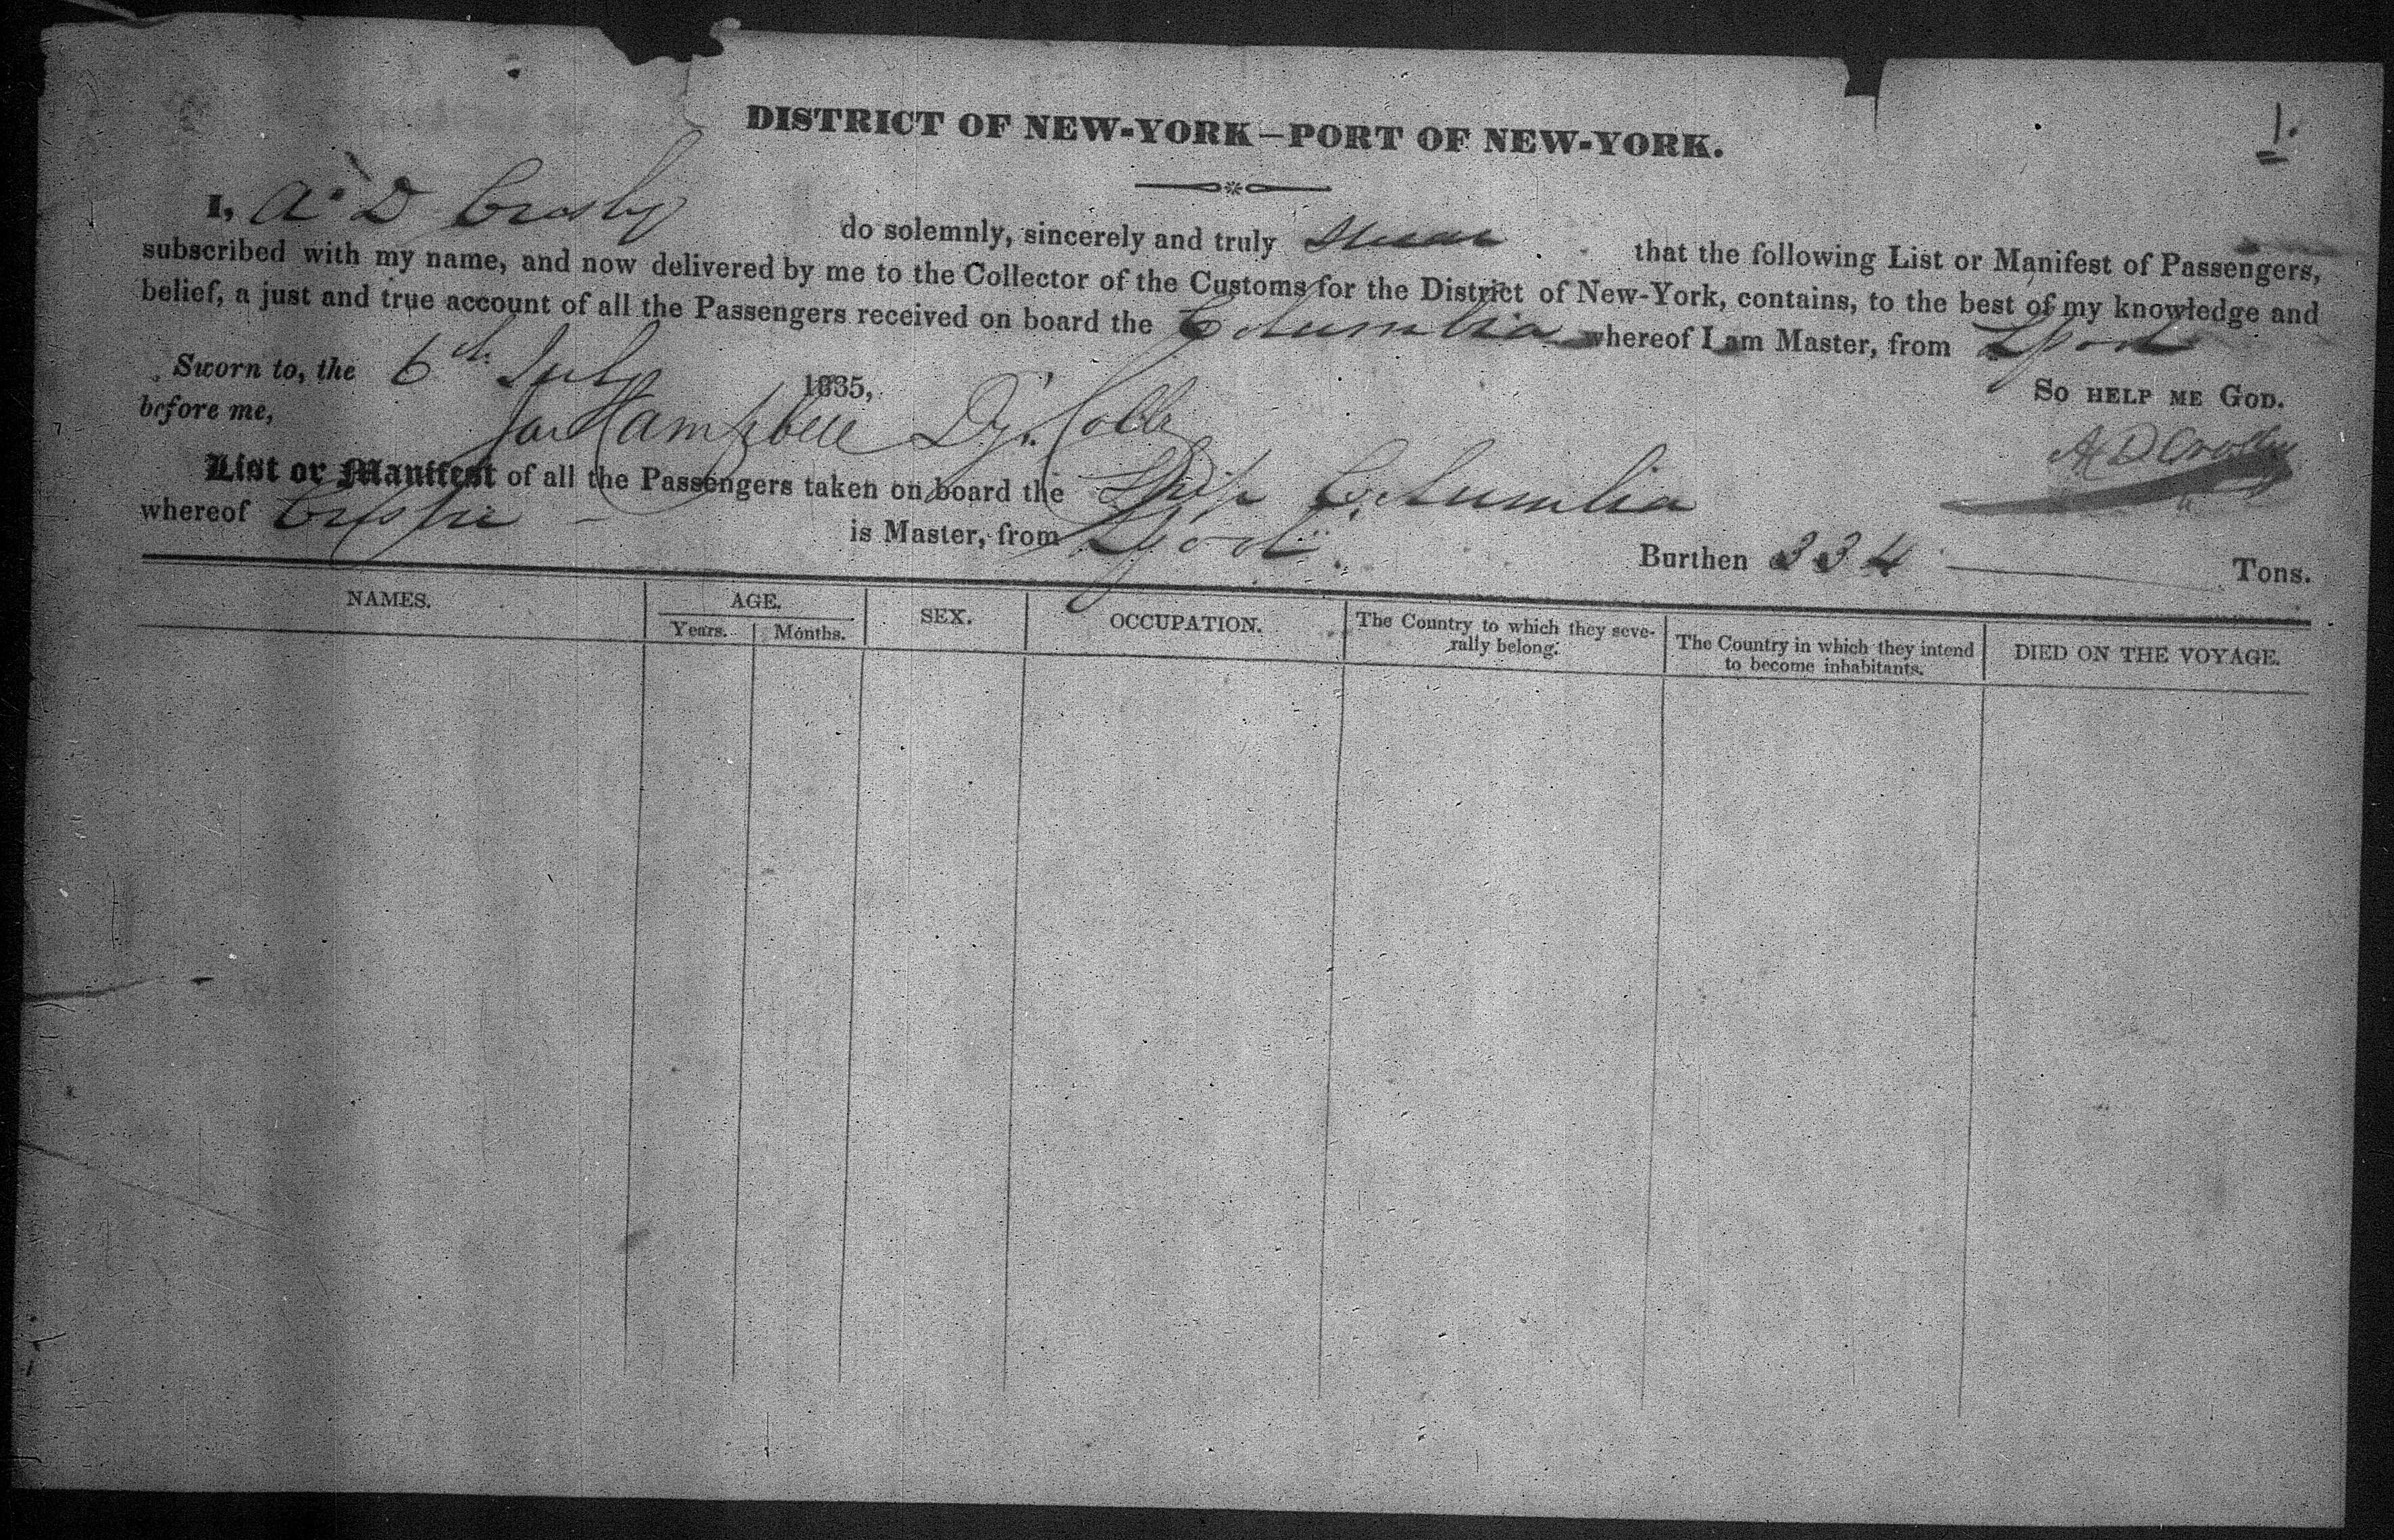 1.
DISTRICT OF NEW-YORK—PORT OF NEW-YORK.
I, A. D Crosby do solemnly, sincerely and truly swear that the following List or Manifest of Passengers,
subscribed with my name, and now delivered by me to the Collector of the Customs for the District of New-York, contains, to the best of my knowledge and
belief, a just and true account of all the Passengers received on board the Columbia whereof I am Master, from Lpool
Sworn to, the 6th July 1835, SO HELP ME GOD.
before me, Jas Campbell Dy. Coll A D Crosby
List or Manifest of all the Passengers taken on board the Ship Columbia
whereof is Master, from Lpool. Burthen 334 Tons.
NAMES. AGE. SEX. OCCUPATION. The Country to which they seve- The Country in which they intend DIED ON THE VOYAGE.
Years. Months. rally belong. to become inhabitants.